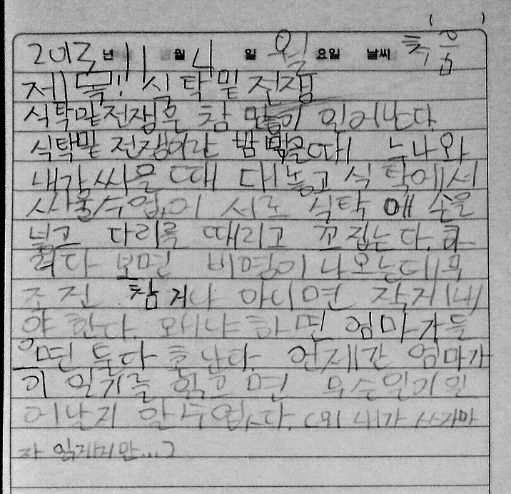 ( )
2013년 11월 4일 월요일 날씨 흐음
제목!! 식탁밑전쟁
식탁밑전쟁은 참 많이 일어난다
식탁밑 전쟁이란 밥먹을때 누나와
내가 싸울때 대놓고 식탁에서
싸울수업이 서로 식탁에 손을
놓고 다리를 때리고 꼬집는다.
다 보면 비명이 나오는데 무
조건 참거나 아니면 작게내
야 한다. 왜냐하면 엄마가 들
으면 둘다 혼난다. 언젠간 엄마가
이 일기를 읽으면 무슨일이 일
어날지 알수업다. (뭐 내가 쓰자마
자 읽겠지만...)